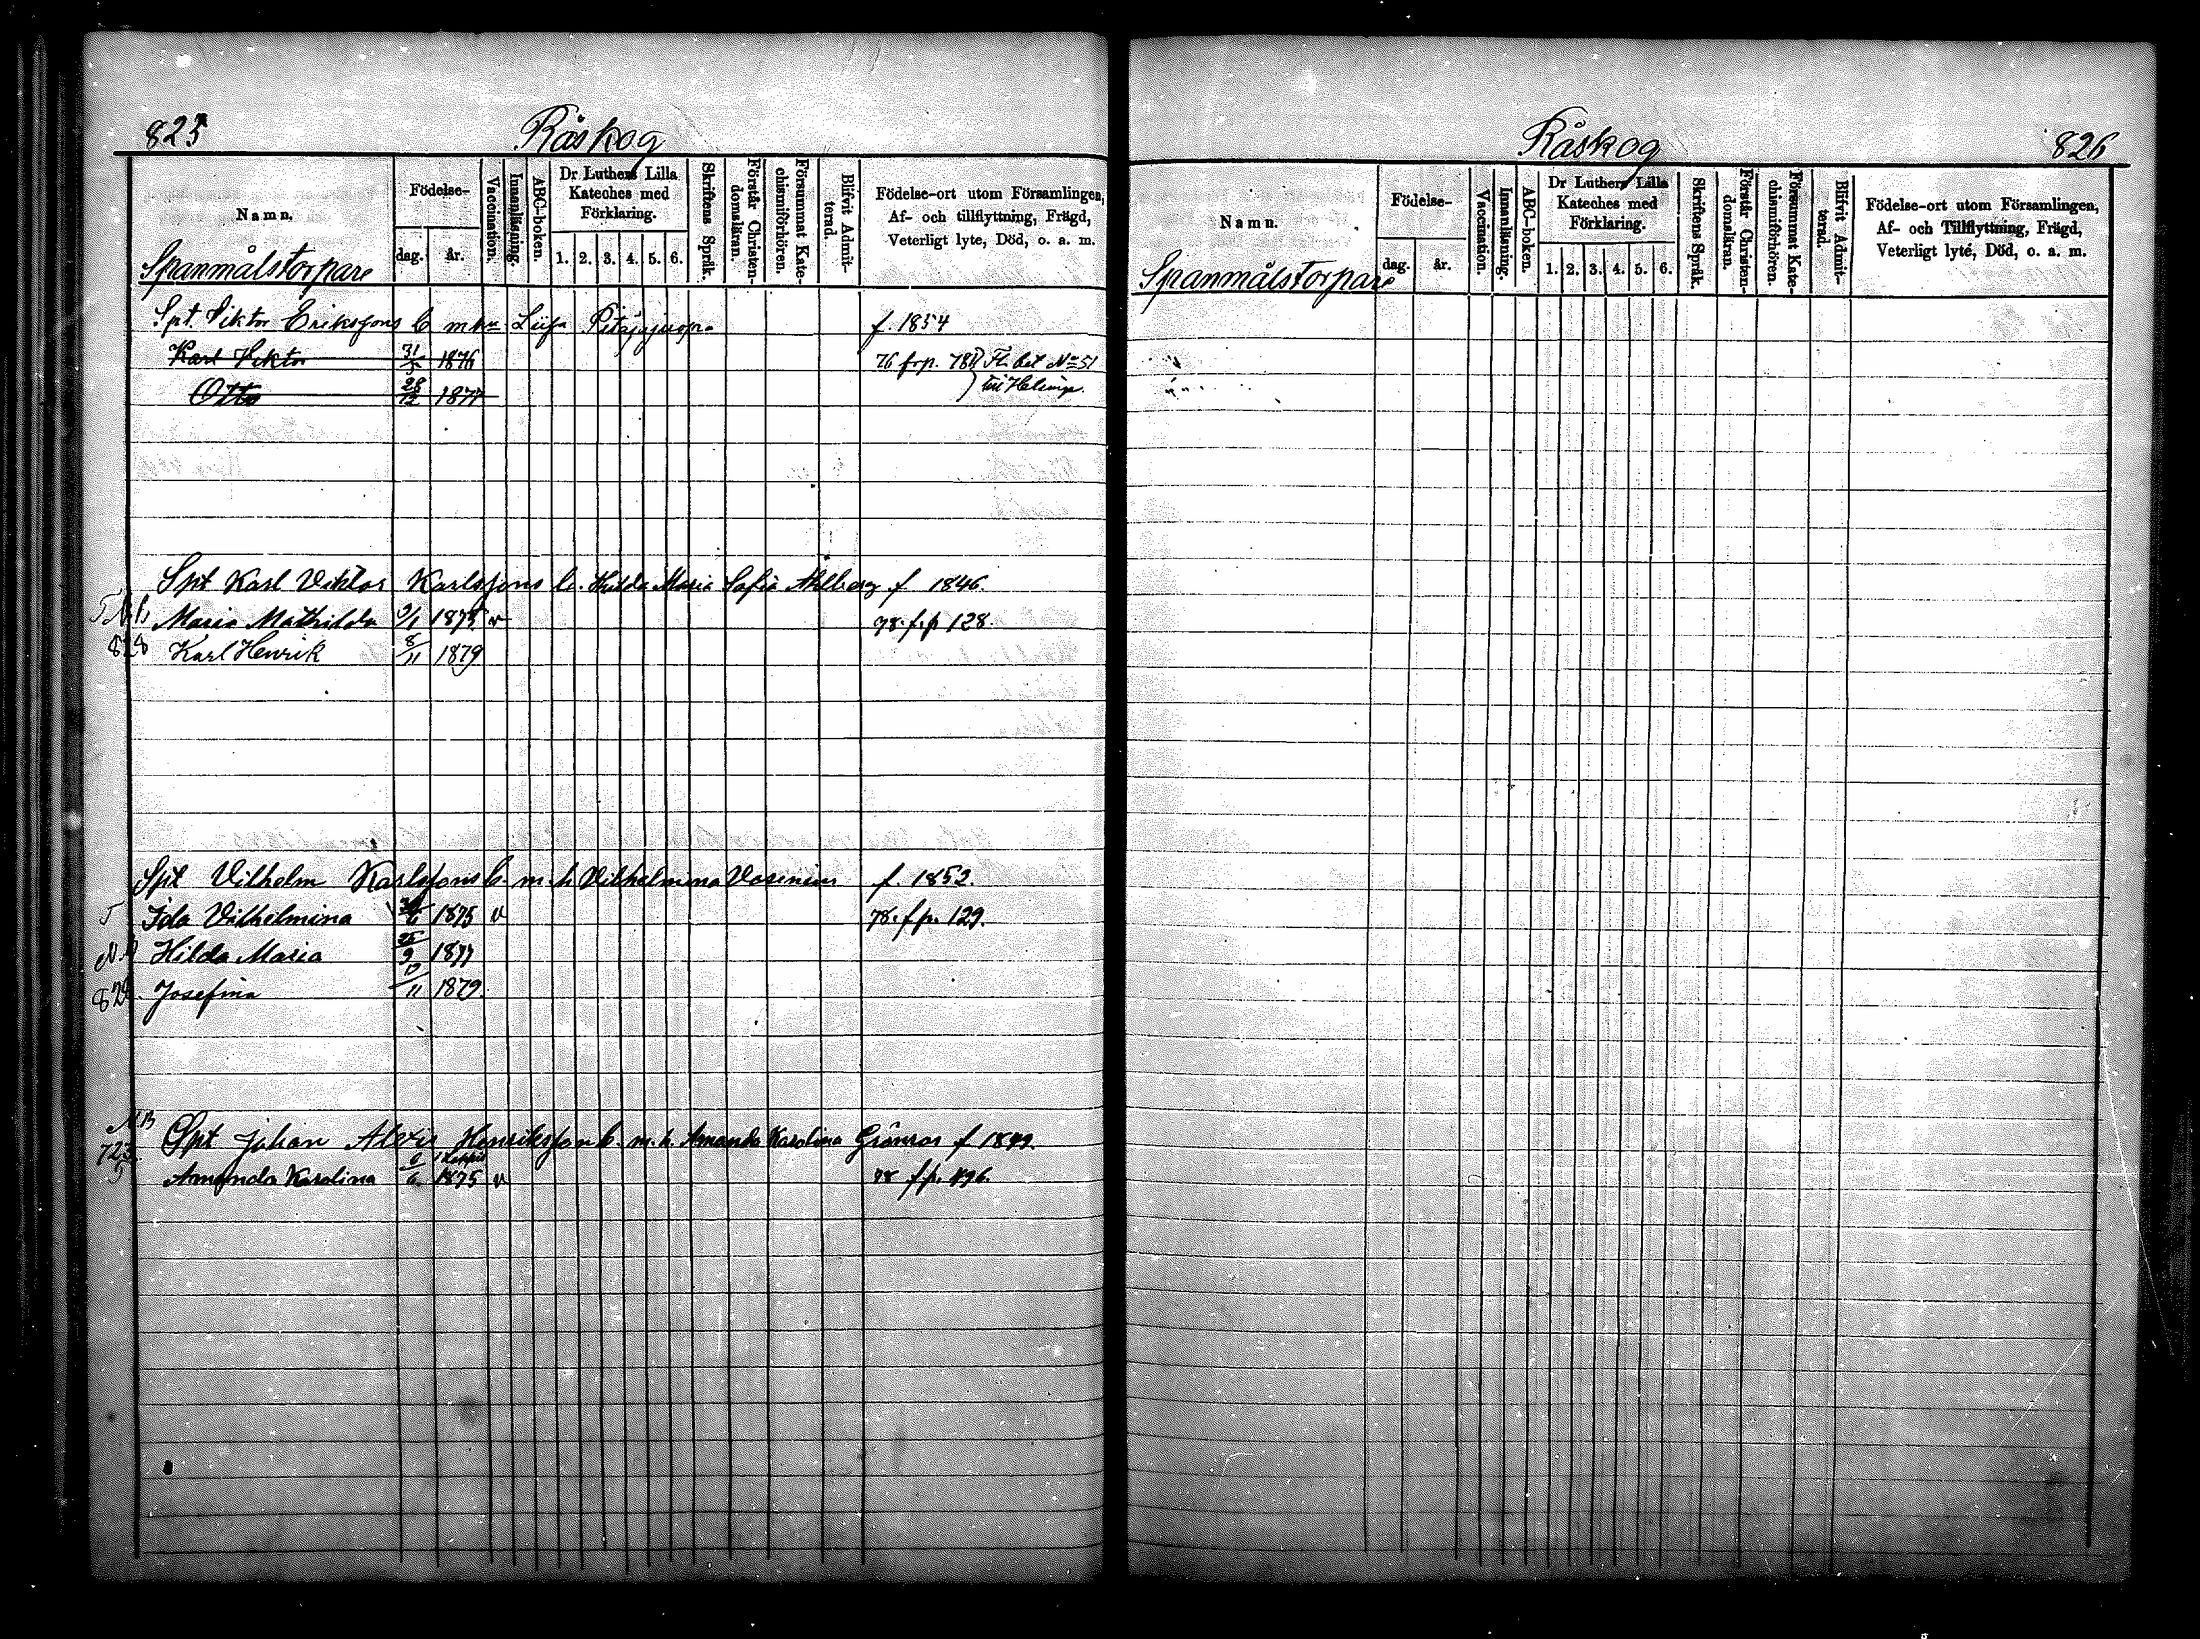 825 Råskog
Namn. Födelse- dag. år. Vaccination. Innanläsning. ABC-boken. Dr Luthers Lilla Kateches med Förklaring. 1. 2. 3. 4. 5. 6. Skriftens Språk. Förstår Christendomsläran. Försummat Katechismiförhören. Blifvit Admitterad. Födelse-ort utom Församlingen, Af- och tillflyttning, Frägd, Veterligt lyte, Död, o. a. m.
Spanmålstorpare
Spt. Viktor Erikssons b. m. h. f. 1854
Karl Viktor 31/5 1876 76 f. p. Fl. bet No 51
Otto 28/12 1877 till Helsingf.
Spt Karl Viktor Karlssons b. Hulda Maria Sofia Ahlberg f 1846.
Maria Mathilda 9/1 1875 v 78. f. p. 128
828 Karl Henrik 8/11 1879
Spt Vilhelm Karlssons b. m. h. Vilhelmina f. 1852.
T Ida Vilhelmina 1875 v 78. f. p. 129.
Hilda Maria 25/9 1877
829. Josefina 19/11 1879.
NB Spt Johan Henriksson b. m. h. Amanda Karolina Grönroos f 1849.
Amanda Karolina 6/6 1875 v 78 f. p.
Råskog 826
Namn. Födelse- dag. år. Vaccination. Innanläsning. ABC-boken. Dr Luthers Lilla Kateches med Förklaring. 1. 2. 3. 4. 5. 6. Skriftens Språk. Förstår Christendomsläran. Försummat Katechismiförhören. Blifvit Admitterad. Födelse-ort utom Församlingen, Af- och Tillflyttning, Frägd, Veterligt lyte, Död, o. a. m.
Spanmålstorpare